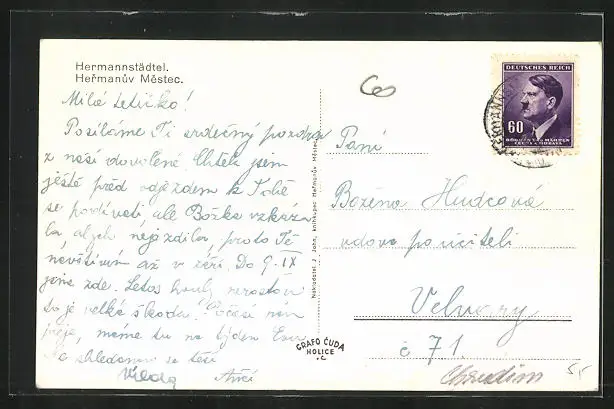 Hermannstädtel.
Heřmanův Městec.
Milá tetičko!
Posíláme Ti srdečný pozdrav
z naší dovolené. Chtěl jsem
ještě před odjezdem k Tobě
se podívati, ale Božka vzkáza-
la, abych nejezdila, proto Tě
navštívím až v září. Do 9. IX
jsme zde. Letos houby nerostou
to je velká škoda. Počasí nám
přeje, máme tu na týden
Na shledanou se těší
Vláďa
Paní
Božena Hudcová
vdova po učiteli
Velvary
č 71.
Chrudim
Nakladatel: John, knihkupec Heřmanův Městec
GRAFO ČUDA
HOLICE
.C
DEUTSCHES REICH
60
BÖHMEN UND MÄHREN
ČECHY A MORAVA